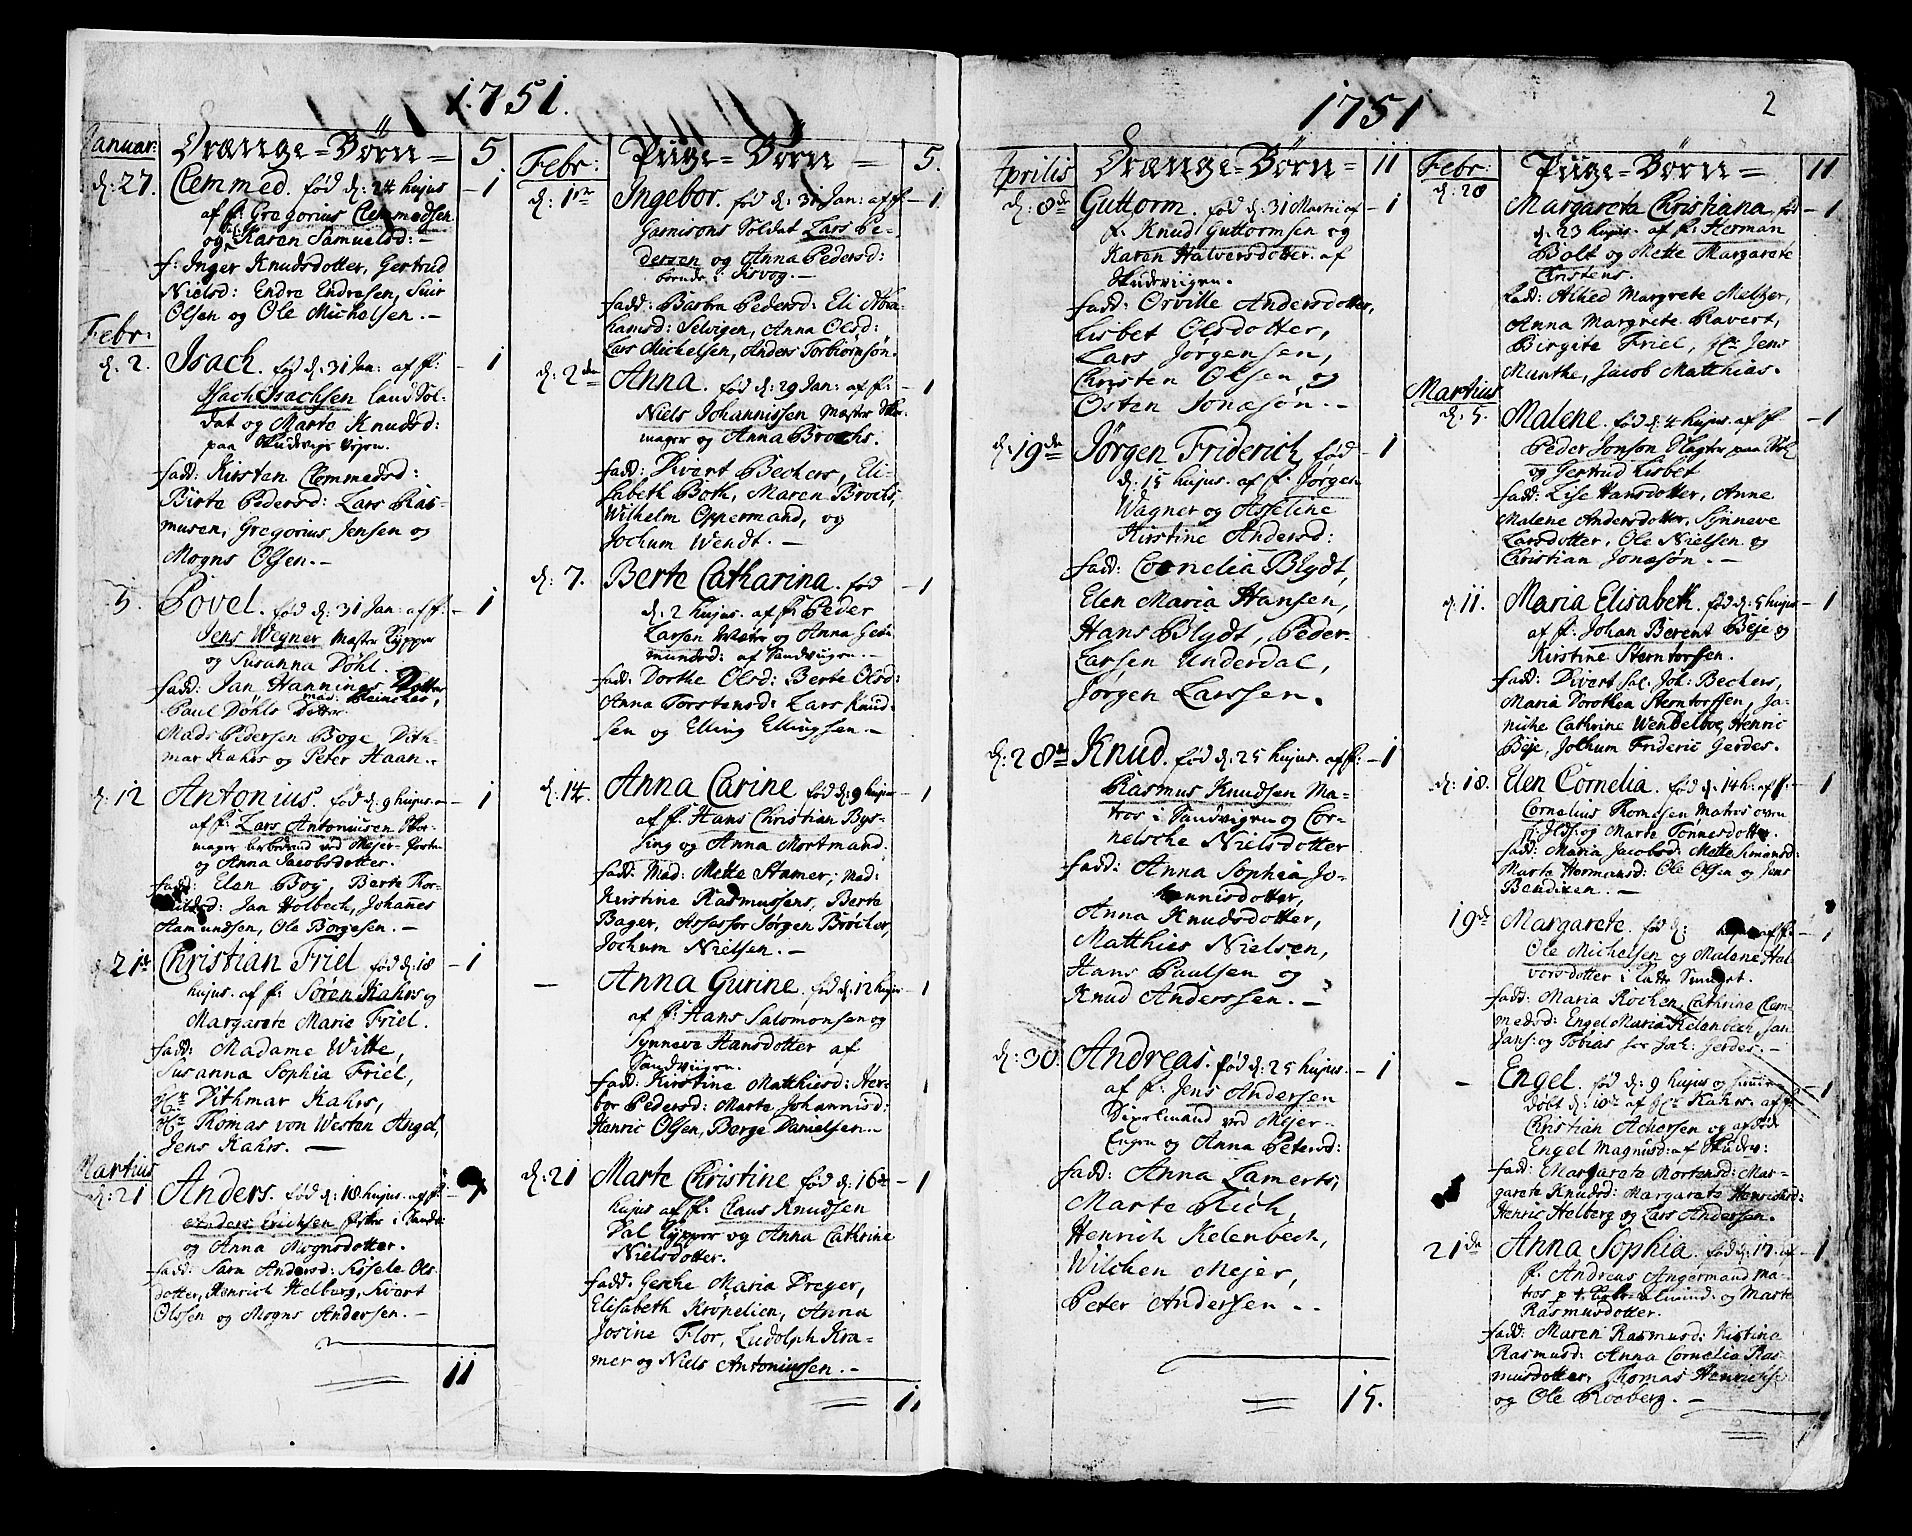 1751.
Januar:
Drænge=Børn=
5
d: 27.
Clemmed. fød d: 24 hujus
1
af f: Gregorius Clemmedsen
og Karen Samuelsd: –
f: Inger Knudsdotter, Gertrud
Nielsd: Endre Endresen, Siur
Olsen og Ole Micholsen. –
Febr:
d: 2.
Isach. fød d: 31 Jan: af f:
1
Isach Isachsen land Sol-
dat og Marte Knudsd:
paa Skudevigs Vejen.
fadd: Kirsten Clemmedsd:
Birte Pedersd: Lars Ras-
musen, Gregorius Jensen og
Mogns Olsen. –
5.
Povel. fød d: 31 Jan: af f:
1
Jens Wegner Mæster Kypper
og Susanna Döhl.
fadd: Jan Hannings Dotter
Paul Döhls Dotter
Mads Pedersen Boge, Dith-
mar Kahrs og Peter Haan.
d: 12
Antonius. fød d: 9 hujus.
1
af f: Lars Antoniusen Skor-
mager
og Anna Jacobsdotter.
fadd: Elen Boy, Berte Tor-
Jan Holbech, Johannes
Hamundsen, Ole Börgesen. –
d: 21de
Christian Friel. fød d: 18
1
hujus. af f: Sören Kahrs og
Margarete Marie Friel.
fadd: Madame Witte,
Susanna Sophia Friel,
Hr Dithmar Kahrs,
Hr Thomas von Westen Angel,
Jens Kahrs. –
Martius
d: 21
Anders. fød d: 18 hujus. af f:
Anders Erichsen
og Anna Mognsdotter.
fadd: Sara Andersd: Sissele Ols-
dotter, Henrich Helburg, Sivert
Olssen og Mogns Andersen. –
11
Febr:
Piige=Børn=
5.
d: 1ste
Ingebor. fød d: 31 Jan: af f.
1
Garnisons Soldat Lars Pe-
dersen og Anna Pedersd:
boende i
fadd: Barbra Pedersd: Eli Abra-
hamsd: Selvigen, Anna Olsd:
Lars Michelsen, Anders Torbiørnsön.
d: 2den
Anna. fød d: 29 Jan: af f:
1
Niels Johannissen Mæster
mager og Anna Brochs.
fadd: Divert Bechers, Eli-
sabeth Both, Maren Brochs,
Wilhelm Oppermand, og
Jochum Wendt. –
d: 7.
Berte Catharina. fød
1
d: 2 hujus. af f: Peder
Larsen og Anna Gud-
mundsd: af Sandviigen. –
fadd: Dorthe Olsd: Berte Olsd:
Anna Torstensd: Lars Knud-
sen og Elling Ellingsen –
d: 14.
Anna Carine fød d: 9 hujus
1
af f: Hans Christian Bys-
sing og Anna Mortmand.
fadd: Mad: Mette Stamer, Mad:
Kirstine Rasmussens, Berte
Bager, Assessor Jørgen Bröcher,
Jochum Nielsen. –
–
Anna Gurine. fød d: 12 hujus
1
af f: Hans Salomonsen og
Synneve Hansdotter af
Sandviigen.
fadd: Kirstine Matthiesd: Her-
bor Pedersd: Marte Johannisd:
Henric Olsen, Berge Danielsen.
d: 21
Marte Christine fød d: 16de
1
hujus af f: Claus Knudsen
Kypper og Anna Cathrine
Nielsdotter.
fadd. Gesche Maria Preger,
Elisabeth Kröpelien, Anna
Josine Flor, Ludolph Kra-
mer og Niels Antoniussen. –
11
1751
2
Aprilis
Drænge=Børn=
11
d: 8de
Guttorm. fød d: 31 Martii af
1
f. Knud Guttormsen og
Karen Halversdotter. af
Skudeviigen.
fadd: Orville Andersdotter,
Lisbet Olsdotter,
Lars Jørgensen,
Christen Olsen og
Osten Jonasön. –
d: 19de
Jørgen Friderich fød
1
d: 15 hujus. af f: Jørgen
Wagner og Asseline
Kirstine Andersd:
fadd: Cornelia Blydt,
Elen Maria Hansen,
Hans Blydt, Peder
Larsen Underdal,
Jørgen Larssen.
d: 28de
Knud. fød d: 25 hujus. af f:
1
Rasmus Knudsen Ma-
tros i Sandvigen og Cor-
nelsche Nielsdotter
fadd: Anna Sophia Jo-
hannisdotter,
Anna Knudsdotter,
Matthies Nielsen,
Hans Paulsen og
Knud Anderssen. –
d: 30.
Andreas. fød d: 25 hujus.
1
af f: Jens Andersen
ved Mejer
Engen og Anna Petersd:
fadd: Anna Lamerts,
Marte Rich,
Henrich Kelenbech,
Wilchen Mejer,
Peter Andersen. –
15.
Febr:
Piige=Børn=
11
d: 28
Margareta Christiana, fød
1
d: 23 hujus. af f: Herman
Bolt og Mette Margarete
Christens.
fadd: Alhed Margrete Meltzer,
Anna Margrete Ravert,
Birgite Friel, Hr: Jens
Munthe, Jacob Matthias.
Martius
d: 5.
Malene. fød d: 4 hujus. af f
1
Peder Jonson Slagter paa
og Gertrud Lisbet
fadd: Lise Hansdotter, Anne
Malene Andersdotter, Synneve
Larsdotter, Ole Nielsen og
Christian Jonasøn. –
d: 11.
Maria Elisabeth. fød d: 5 hujus
1
af f: Johan Berent Beje og
Kirstine Sterntorssen.
fadd: Divert sal. Joh: Bechers,
Maria Dorothea Sterntorssen, Ja-
niche Cathrine Wendelboe, Henric
Beje, Jochum Frideric Gerdes.
d: 18.
Elen Cornelia. fød d: 14 h: af f:
1
Cornelius Thomesen Matros oven
og Marte Tonnesdotter.
fadd: Maria Jacobsd: Mette Simonsd:
Marte Hermansd: Ole Olsen og Jens
Bendixen. –
19de
Margarete. fød d: hujus af f:
1
Ole Michelsen og Malene Hal-
vorsdotter i
fadd: Maria Kochen, Cathrine Clem-
medsd: Engel Maria Kelenbech, Jan
Jans: og Tobias hos Joch: Gerdes. –
–
Engel. fød d: 9 hujus og
1
døbt d: 10de af Hr: Kahrs. af f:
Christian Achersen og
Engel Magnusd: af Skudev:
fadd: Margarete Mortensd: Mar-
garete Knudsd: Margareta Henrichsd:
Henric Helberg og Lars Andersen.
21de
Anna Sophia. fød d: 17. af
1
f. Andreas Angermand Ma-
tros og Marte
Rasmusdotter.
fadd: Maren Rasmusd: Kistina
Rasmusd: Anna Cornelia Ras-
musdotter, Thomas Henrichs
og Ole Roeberg. –